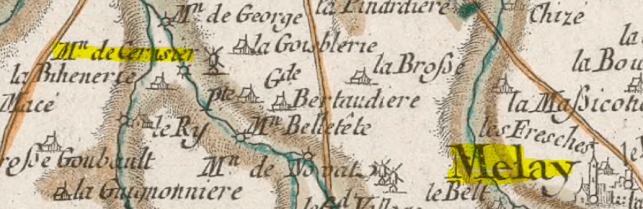 Mⁿ de George
la Pinardiere
Chizé
Mⁿ de Cernster
la Gousblerie
la
la Bihenerie
la Broße
la Bou
Gde
pte
Bertaudiere
la Maßicot
Macé
le Ry
Mⁿ Bellefête
les Fresches
roße Goubault
Mⁿ de
Melay
la Guimonniere
le Bell
Village